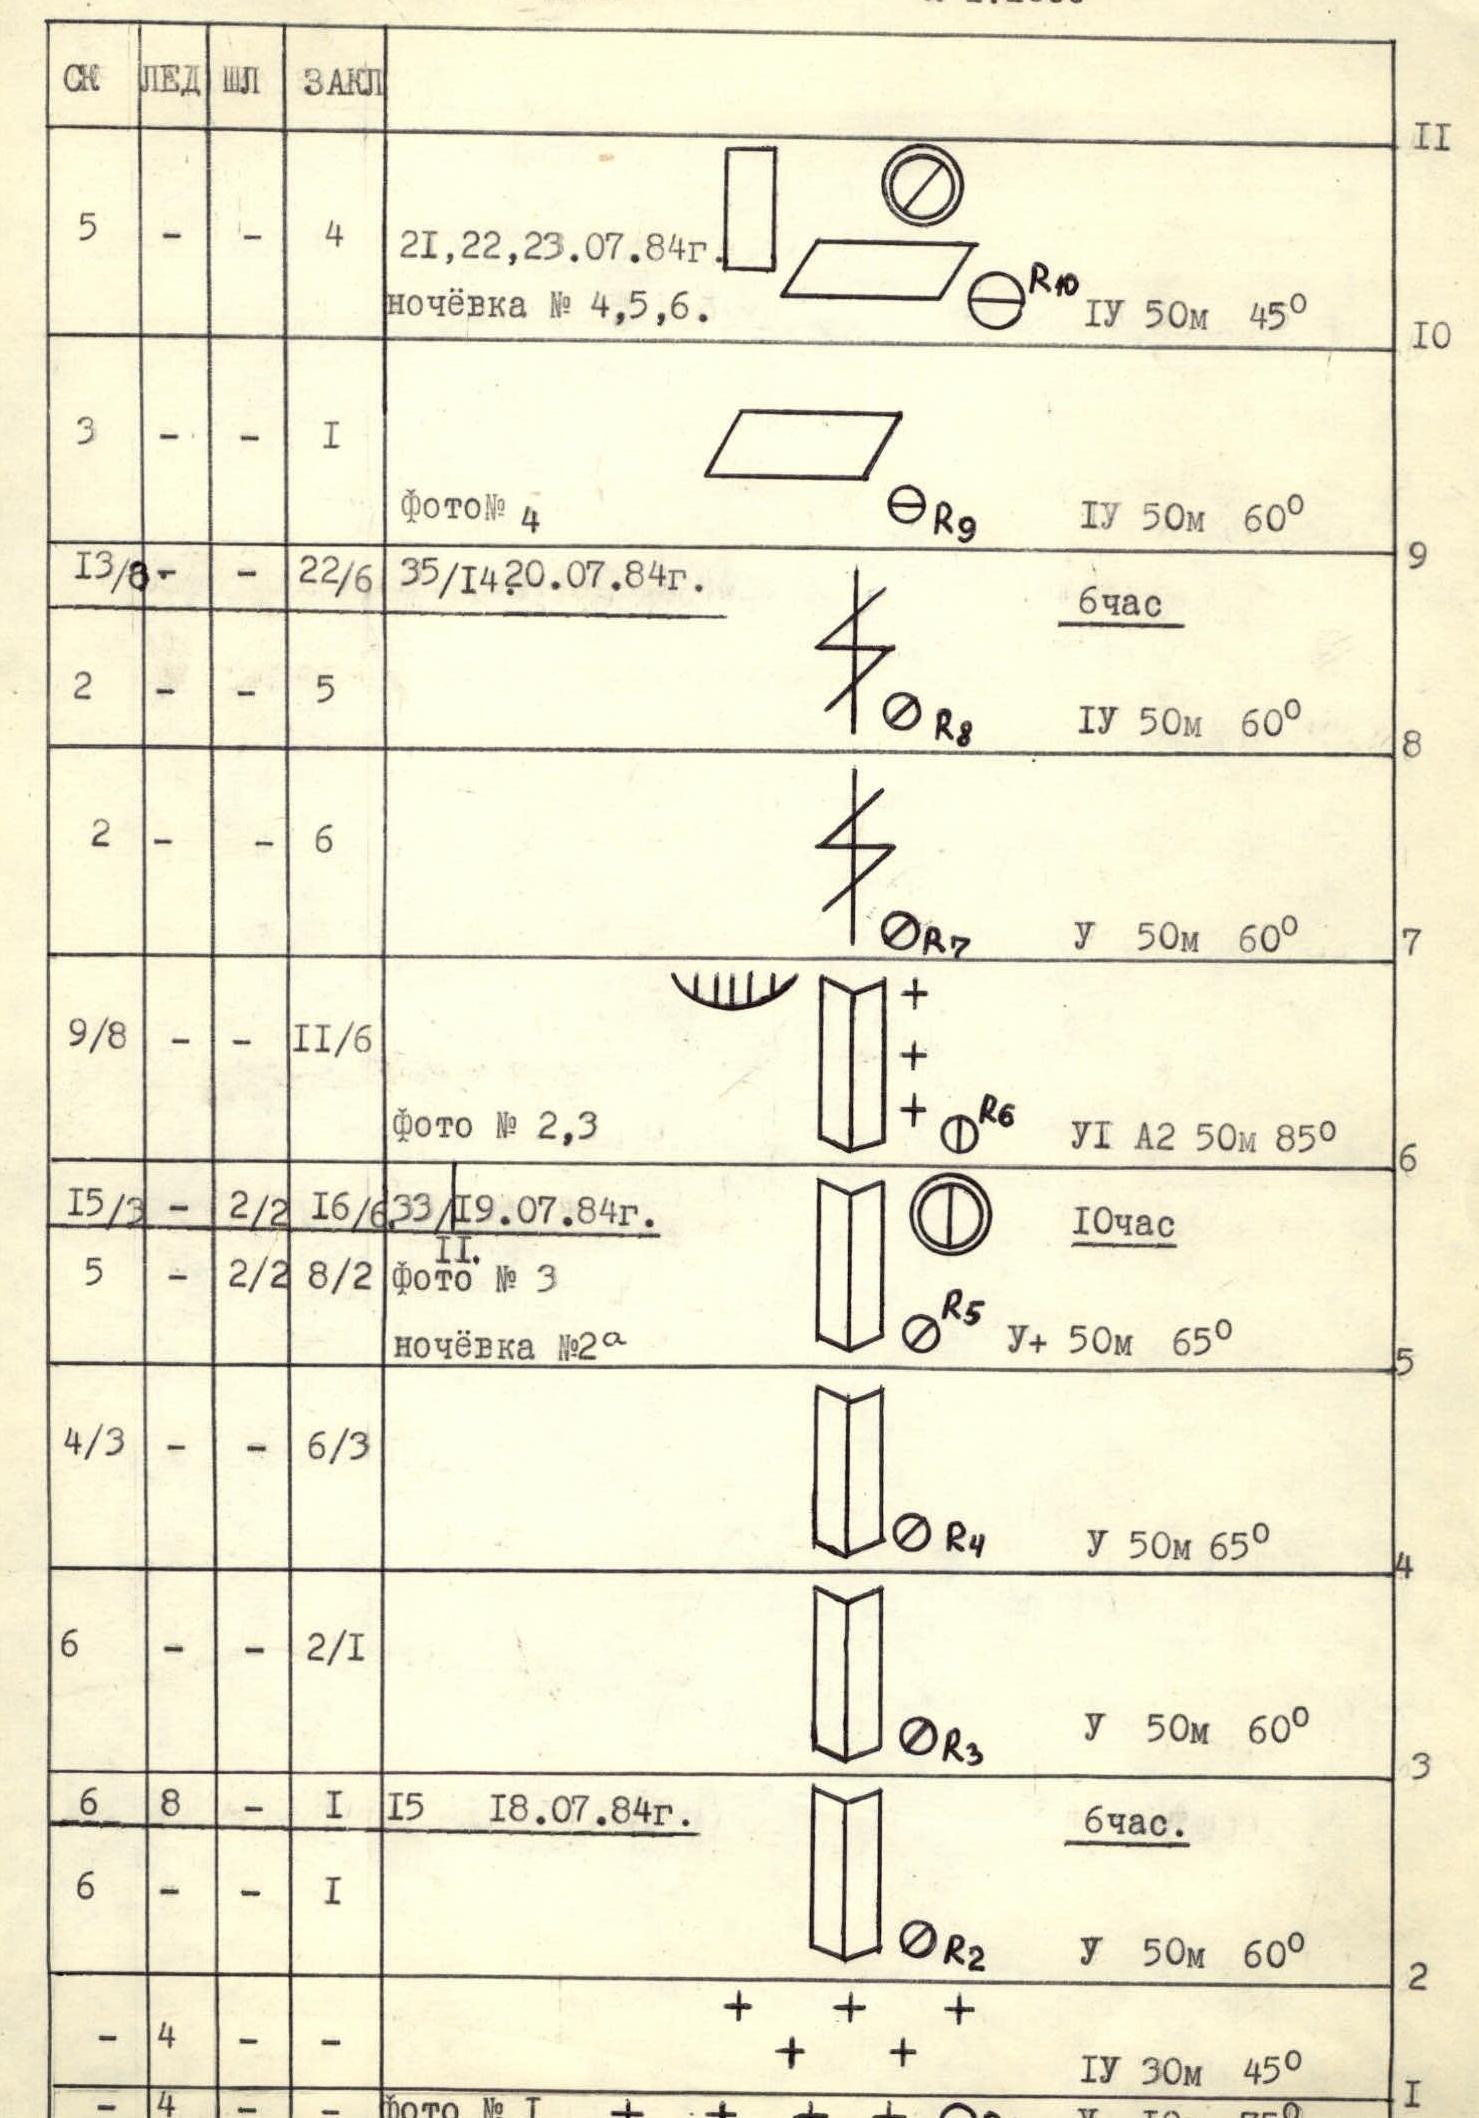 СК ЛЕД ШЛ ЗАКЛ
II
5 - - 4 2I,22,23.07.84г.
ночёвка № 4,5,6. R10 IУ 50м 45⁰
IO
3 - - I
фото№ 4 R9 IУ 50м 60⁰
9
I3/8 - - 22/6 35/I4. 20.07.84г. 6час
2 - - 5 R8 IУ 50м 60⁰
8
2 - - 6
R7 У 50м 60⁰
7
9/8 - - II/6
фото № 2,3 R6 УI А2 50м 85⁰
6
I5/3 - 2/2 I6/6 33/ I9.07.84г. IОчас
II.
5 - 2/2 8/2 фото № 3
ночёвка №2а R5 У+ 50м 65⁰
5
4/3 - - 6/3
R4 У 50м 65⁰
4
6 - - 2/I
R3 У 50м 60⁰
3
6 8 - I I5 I8.07.84г. 6час.
6 - - I
R2 У 50м 60⁰
2
- 4 - -
IУ 30м 45⁰
I
- 4 - - фото № I